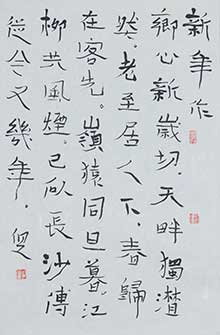 新年作
鄉心新歲切。天畔獨潸
然。老至居人下。春歸
在客先。嶺猿同旦暮。江
柳共風煙。已似長沙傅
從今又幾年。